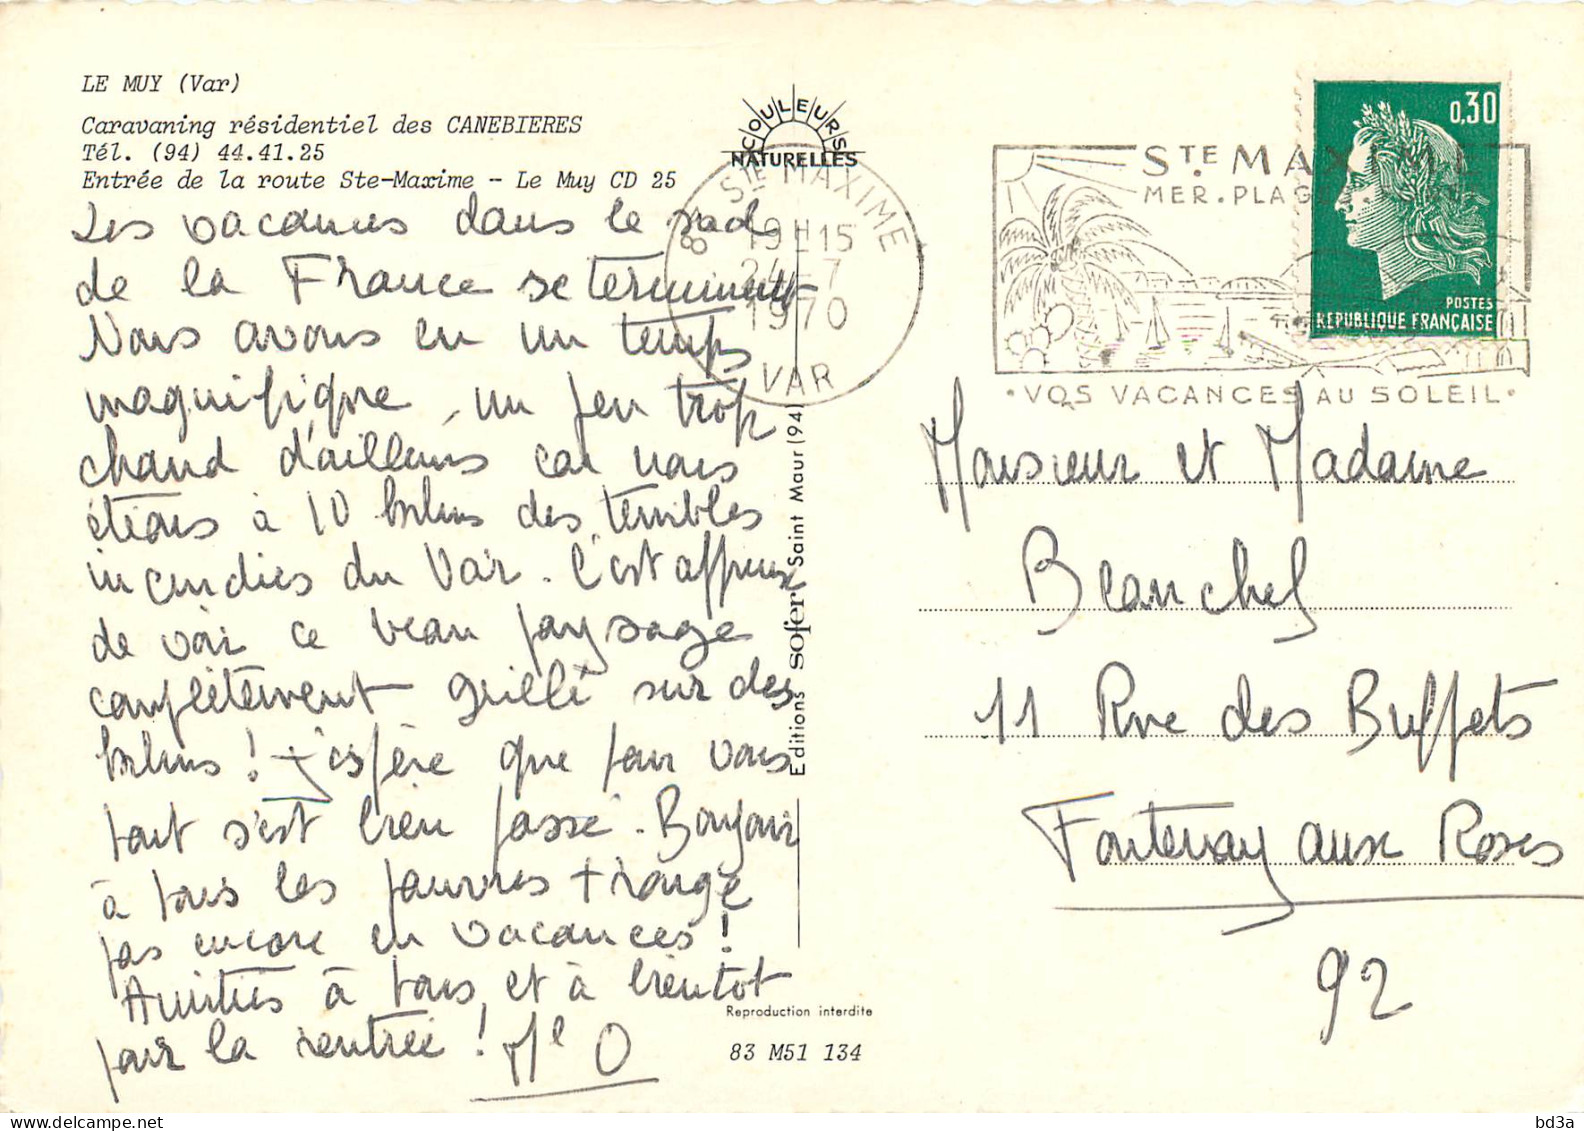 LE MUY (Var)
Caravaning résidentiel des CANEBIERES
Tél. (94) 44.41.25
Entrée de la route Ste-Maxime - Le Muy CD 25
Les vacances dans le sud
de la France se terminent
Nous avons eu un temps
magnifique, un peu trop
chaud d'ailleurs car nous
étions à 10 kilms des terribles
incendies du Var. C'est affreux
de voir ce beau paysage
complètement grillé sur des
kilms ! J'espère que pour vous
tout s'est bien passé. Bonjour
à tous les pauvres
pas encore en vacances !
Amitiés à tous, et à bientot
pour la rentrée ! Ml O
COULEURS
NATURELLES
83 STE MAXIME
19H15
24-7
1970
VAR
STE MAXIME
MER.PLAGE
·VOS VACANCES AU SOLEIL·
0,30
POSTES
REPUBLIQUE FRANÇAISE
Editions sofer Saint Maur (94)
Monsieur et Madame
Beauchef
11 Rue des Buffets
Fontenay aux Roses
92
Reproduction interdite
83 M51 134
bd3a